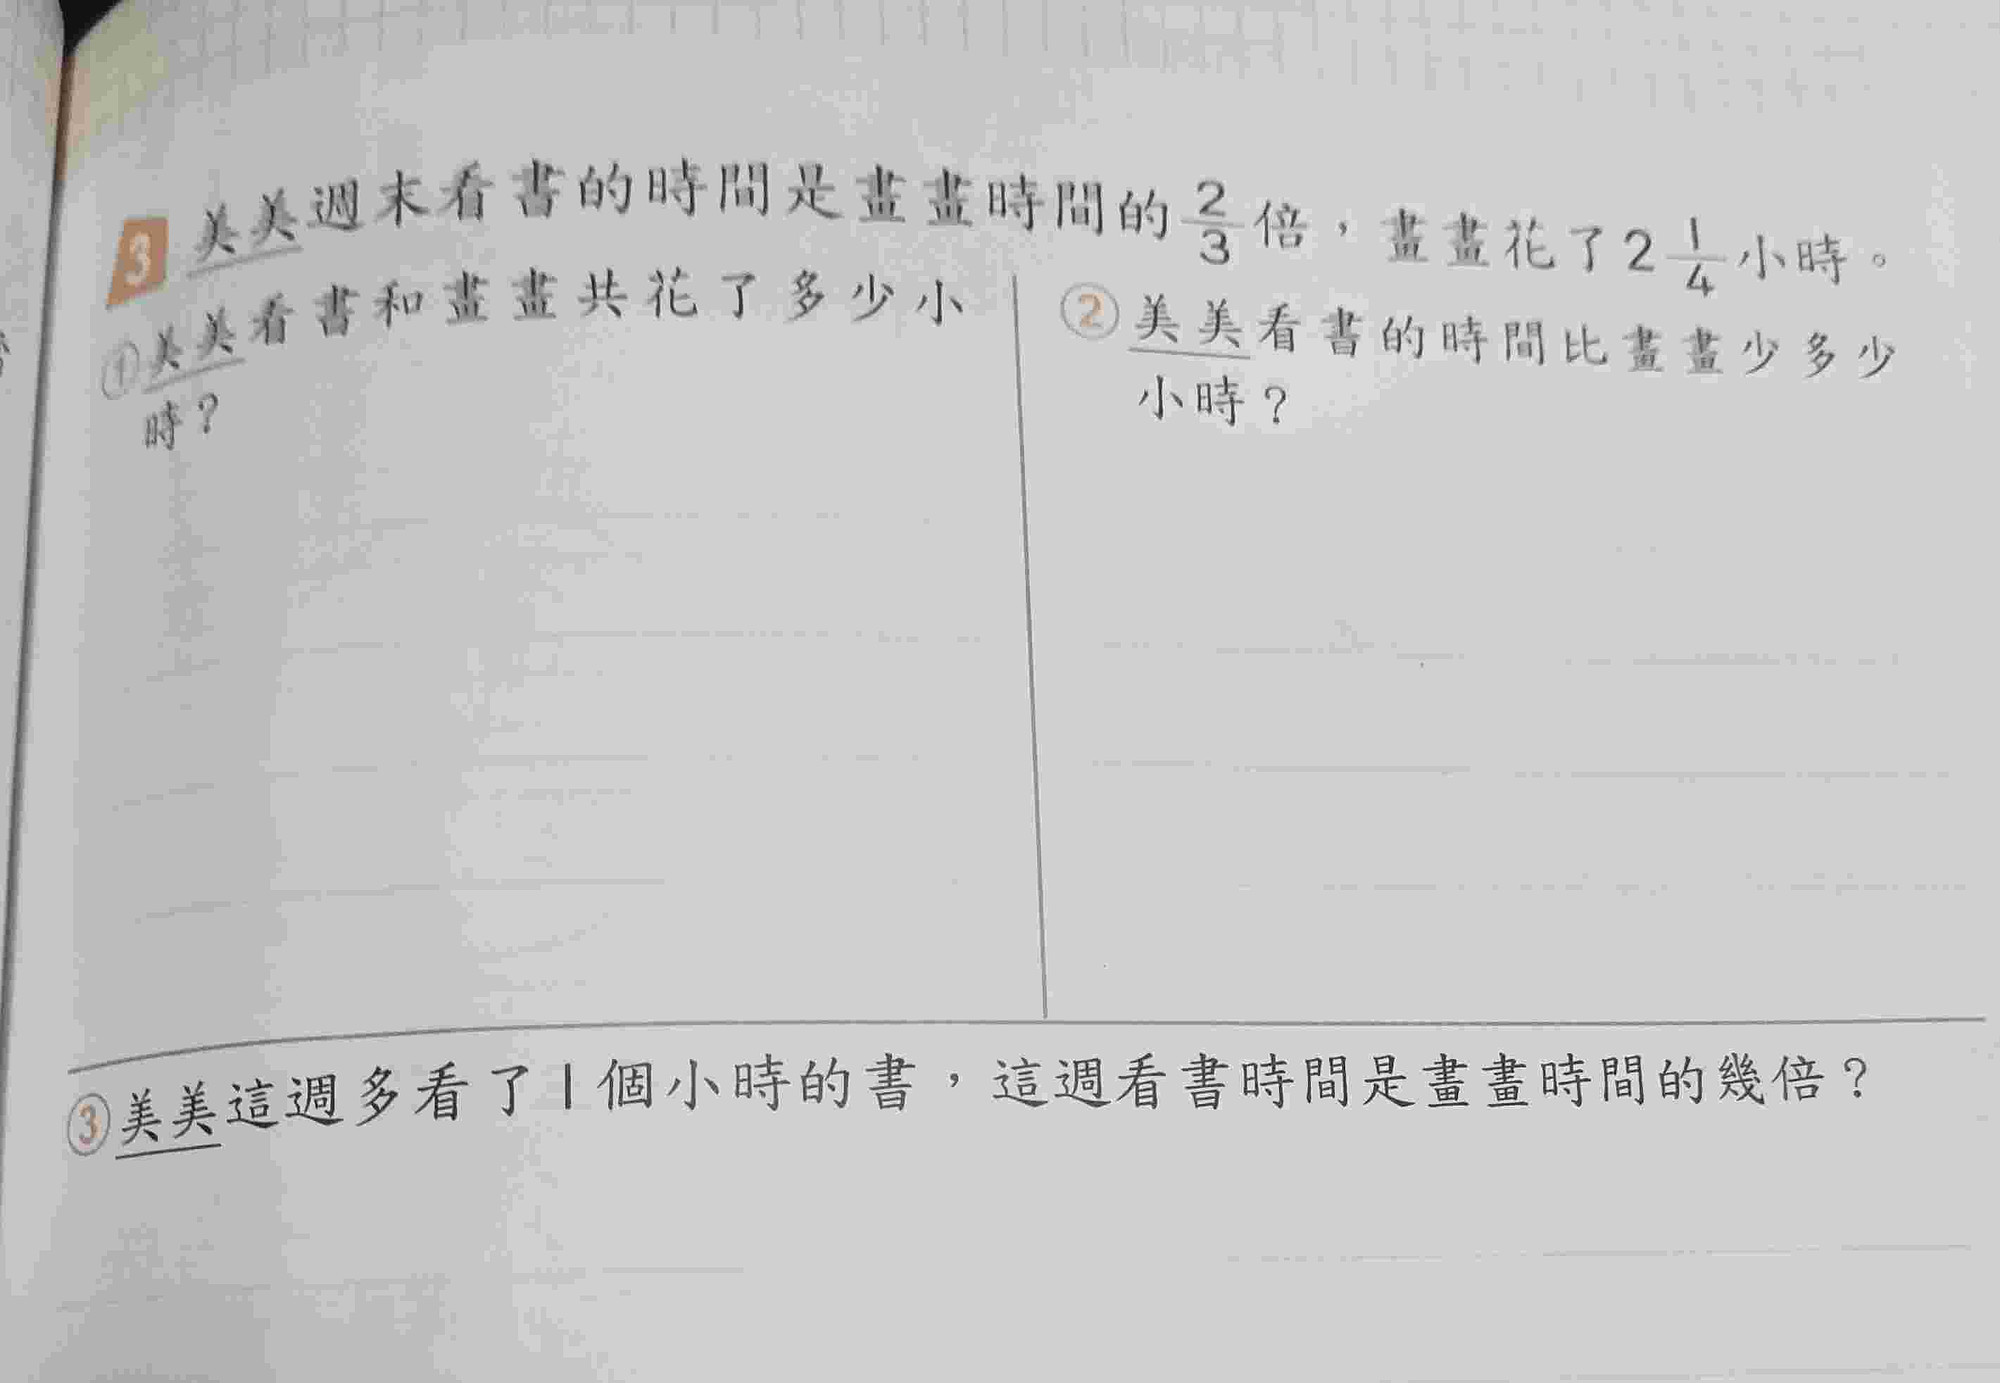 3 美美週末看書的時間是畫畫時間的2/3倍，畫畫花了2 1/4小時。
①美美看書和畫畫共花了多少小
時？
②美美看書的時間比畫畫少多少
小時？
③美美這週多看了1個小時的書，這週看書時間是畫畫時間的幾倍？